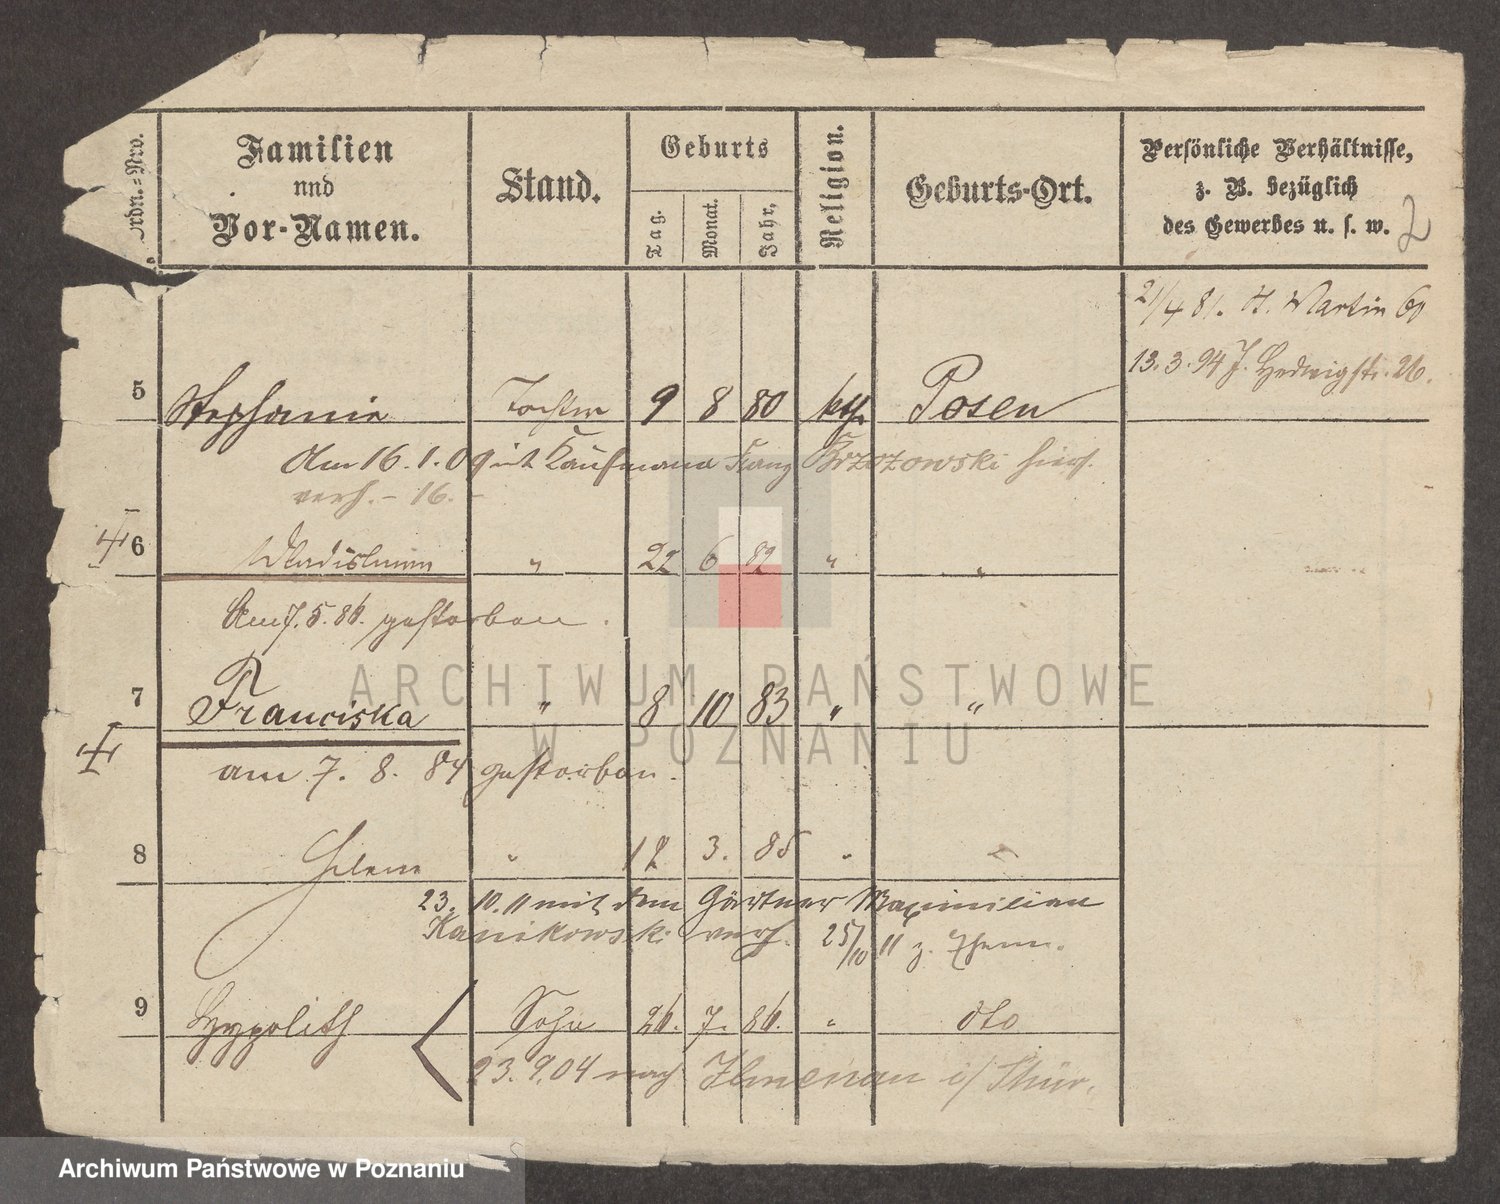 Ordn.-Nro.
Familien
und
Vor-Namen.
Stand.
Geburts
Tag.
Monat.
Jahr.
Religion.
Geburts-Ort.
Persönliche Verhältnisse,
z. B. bezüglich
des Gewerbes u. s. w.
2
21/4 81. St. Martin 60
13. 3. 94 J. Hedwigstr. 26.
5 Stephanie Tochter 9 8 80 kth. Posen
Am 16. 1. 09 mit Kaufmann Franz Brzozowski hier
verh. – 16. –
6 Wladislawa " 22 6 82 " "
Am 7. 5. 86. gestorben.
7 Franciska " 8 10 83 " "
am 7. 8. 84 gestorben.
8 Helene " 12 3. 85 " "
23. 10. 11 mit dem Gärtner Maximilian
Kanikowski verh. 25/10 11 z.
9 Hyppolith Sohn 26. 7. 86. " dto
23. 9. 04 nach Ilmenau i/Thür.
ARCHIWUM PAŃSTWOWE
W POZNANIU
Archiwum Państwowe w Poznaniu